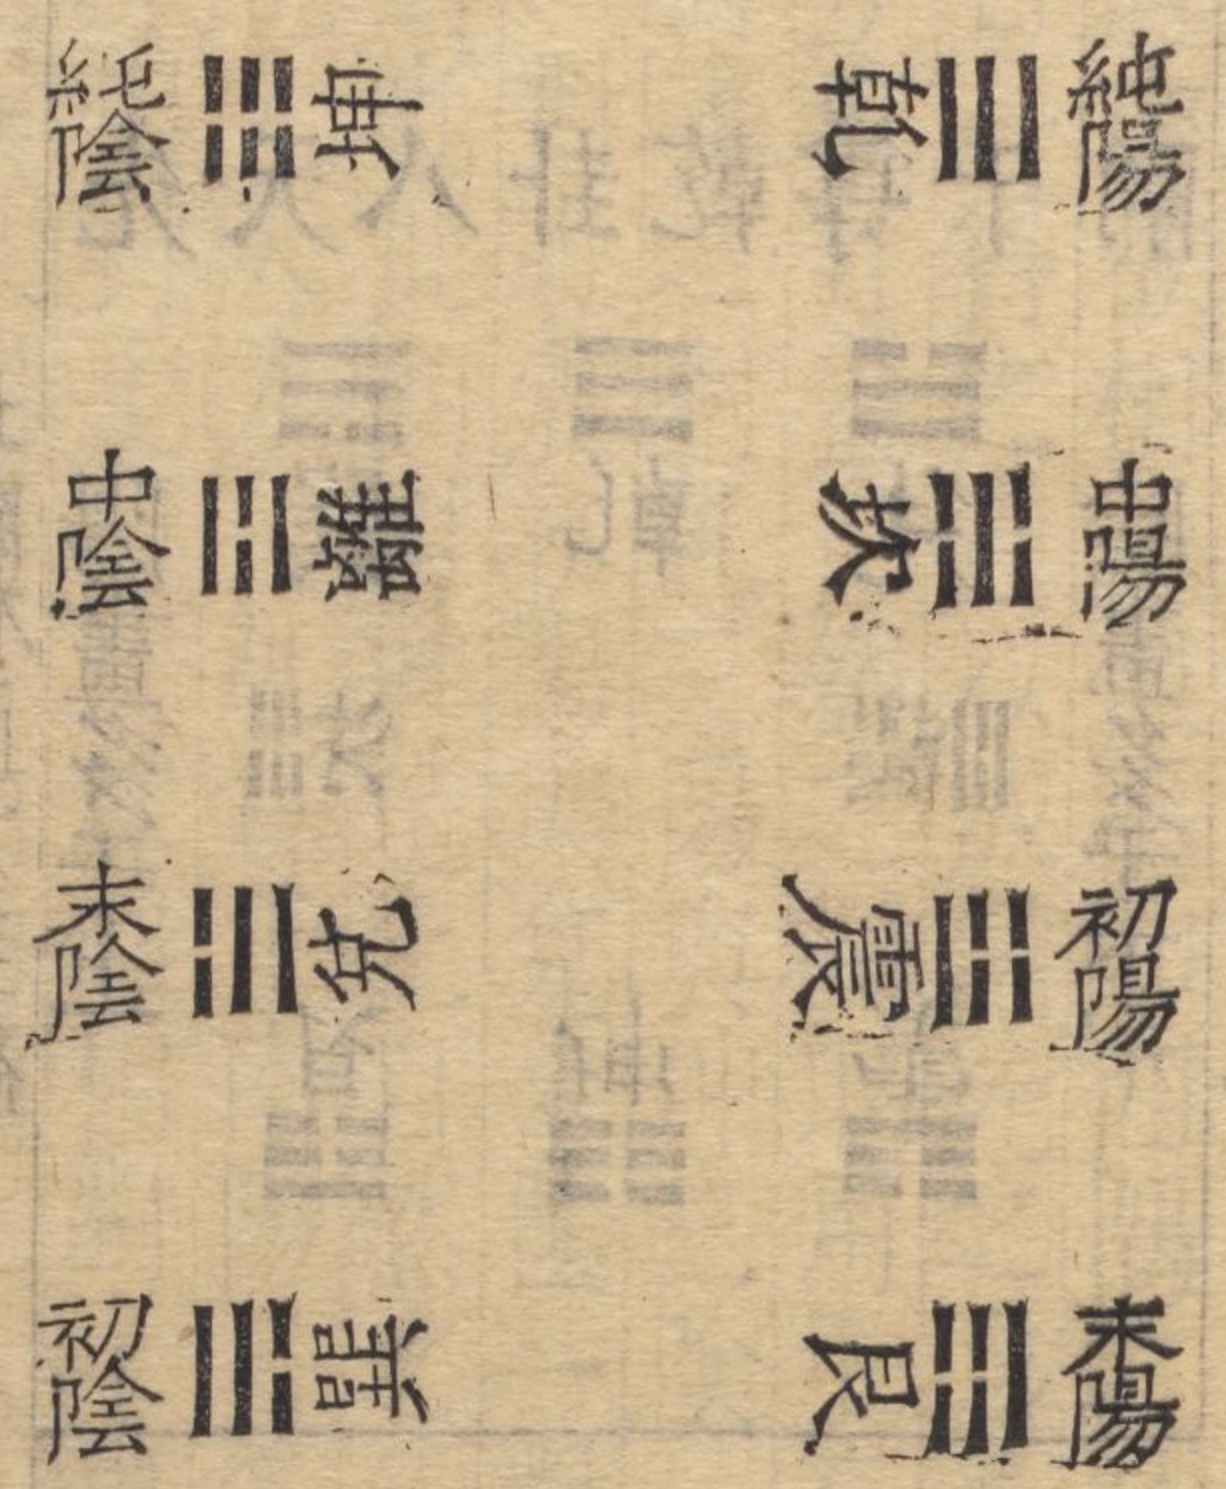 純陽 ☰ 乾
中陽 ☵ 坎
初陽 ☳ 震
末陽 ☶ 艮
坤 ☷ 純陰
離 ☲ 中陰
兌 ☱ 末陰
巽 ☴ 初陰